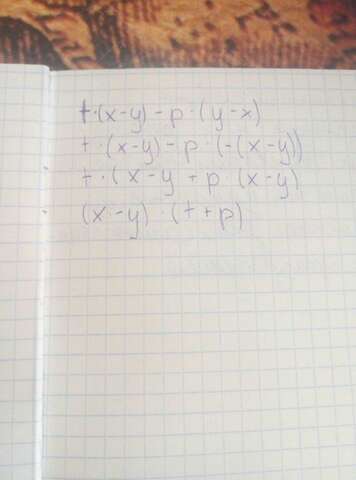 t·(x-y)-p·(y-x)
t·(x-y)-p·(-(x-y))
t·(x-y+p·(x-y)
(x-y)·(t+p)